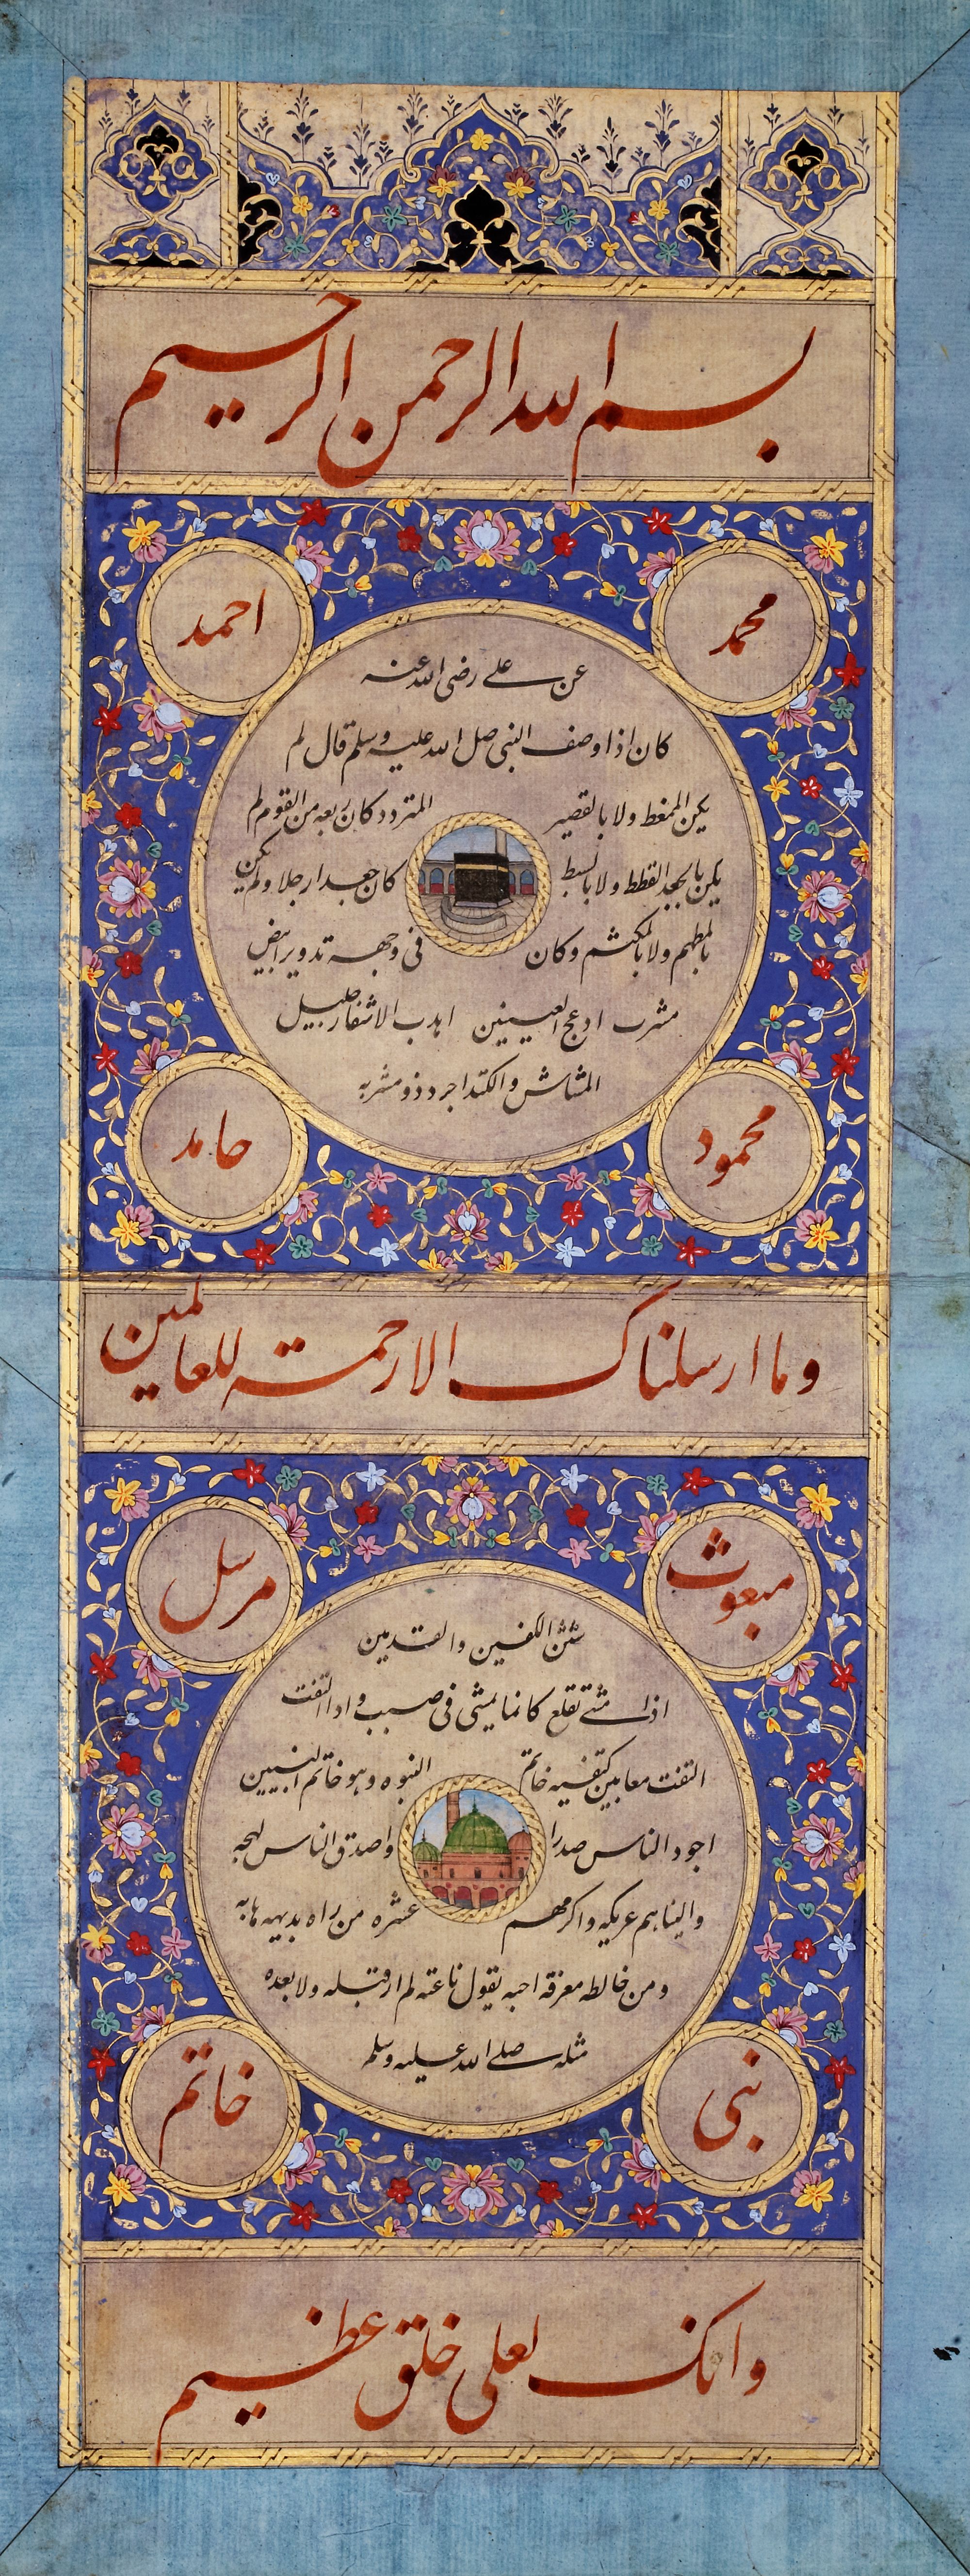 بسم الله الرحمن الرحيم
محمد
احمد
عن علے رضی الله عنه
كان اذا وصف النبی صل الله علیه وسلم قال لم
یكن المغط ولا بالقصیر المتردد كان ربعه من القوم لم
یكن بالجعد القطط ولا بالسبط كان جعدا رجلا ولم یكن
بالمطهم ولا بالمكثم وكان فی وجهه تدویر ابیض
مشرب ادعج العینین اهدب الاشفار جلیل
المشاش والكتد اجرد ذو مشربه
محمود
حامد
وما ارسلناك الا رحمة للعالمین
مبعوث
مرسل
شثن الكفین والقدمین
اذا مشے تقلع كانما یمشی فی صبب واذا التفت
التفت معا بین كتفیه خاتم النبوه وهو خاتم النبیین
اجود الناس صدرا واصدق الناس لهجه
والیناهم عریكه واكرمهم عشره من راه بدیهه هابه
ومن خالطه معرفة احبه یقول ناعته لم ار قبله ولا بعده
مثله صلے الله علیه وسلم
نبی
خاتم
وانك لعلی خلق عظیم